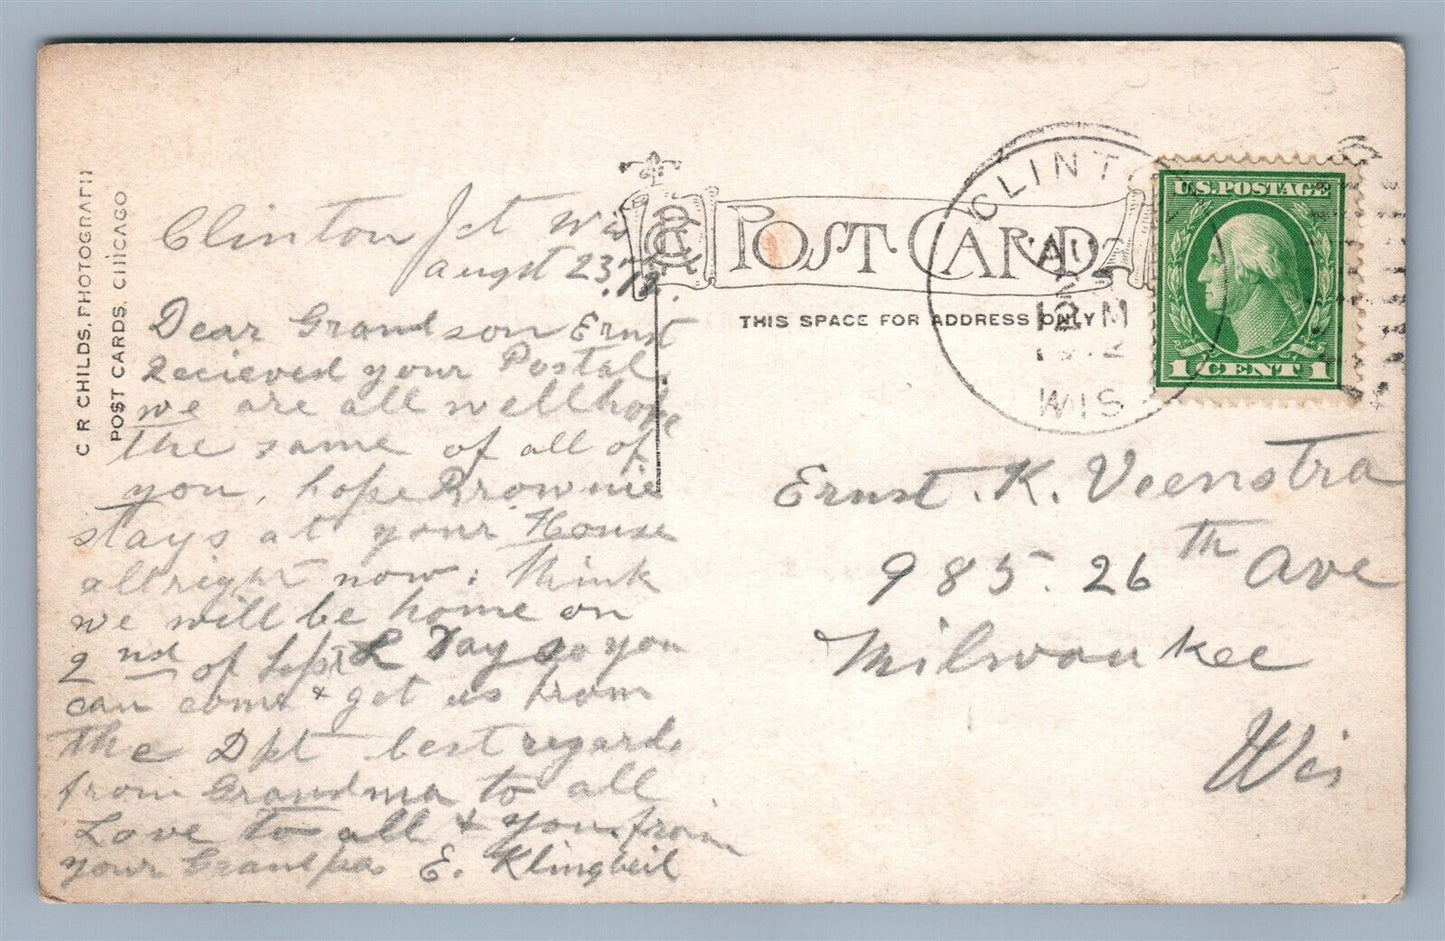 C R CHILDS, PHOTOGRAPH
POST CARDS. CHICAGO
POST CARD
THIS SPACE FOR ADDRESS ONLY
CLINTON
AUG
12 M
1912
WIS
U.S. POSTAGE
1 CENT 1
Clinton Jct Wis
augst 23. 12.
Dear Grandson Ernst
Recieved your Postal.
we are all well hope
the same of all of
you, hope Brownie
stays at your House
allright now: think
we will be home on
2nd of Sept L Day so you
can come & get us from
the Dpt best regards
from Grandma to all
Love to all & you from
your Grandpa E. Klingbeil
Ernst. K. Veenstra
985. 26th Ave
Milwaukee
Wis